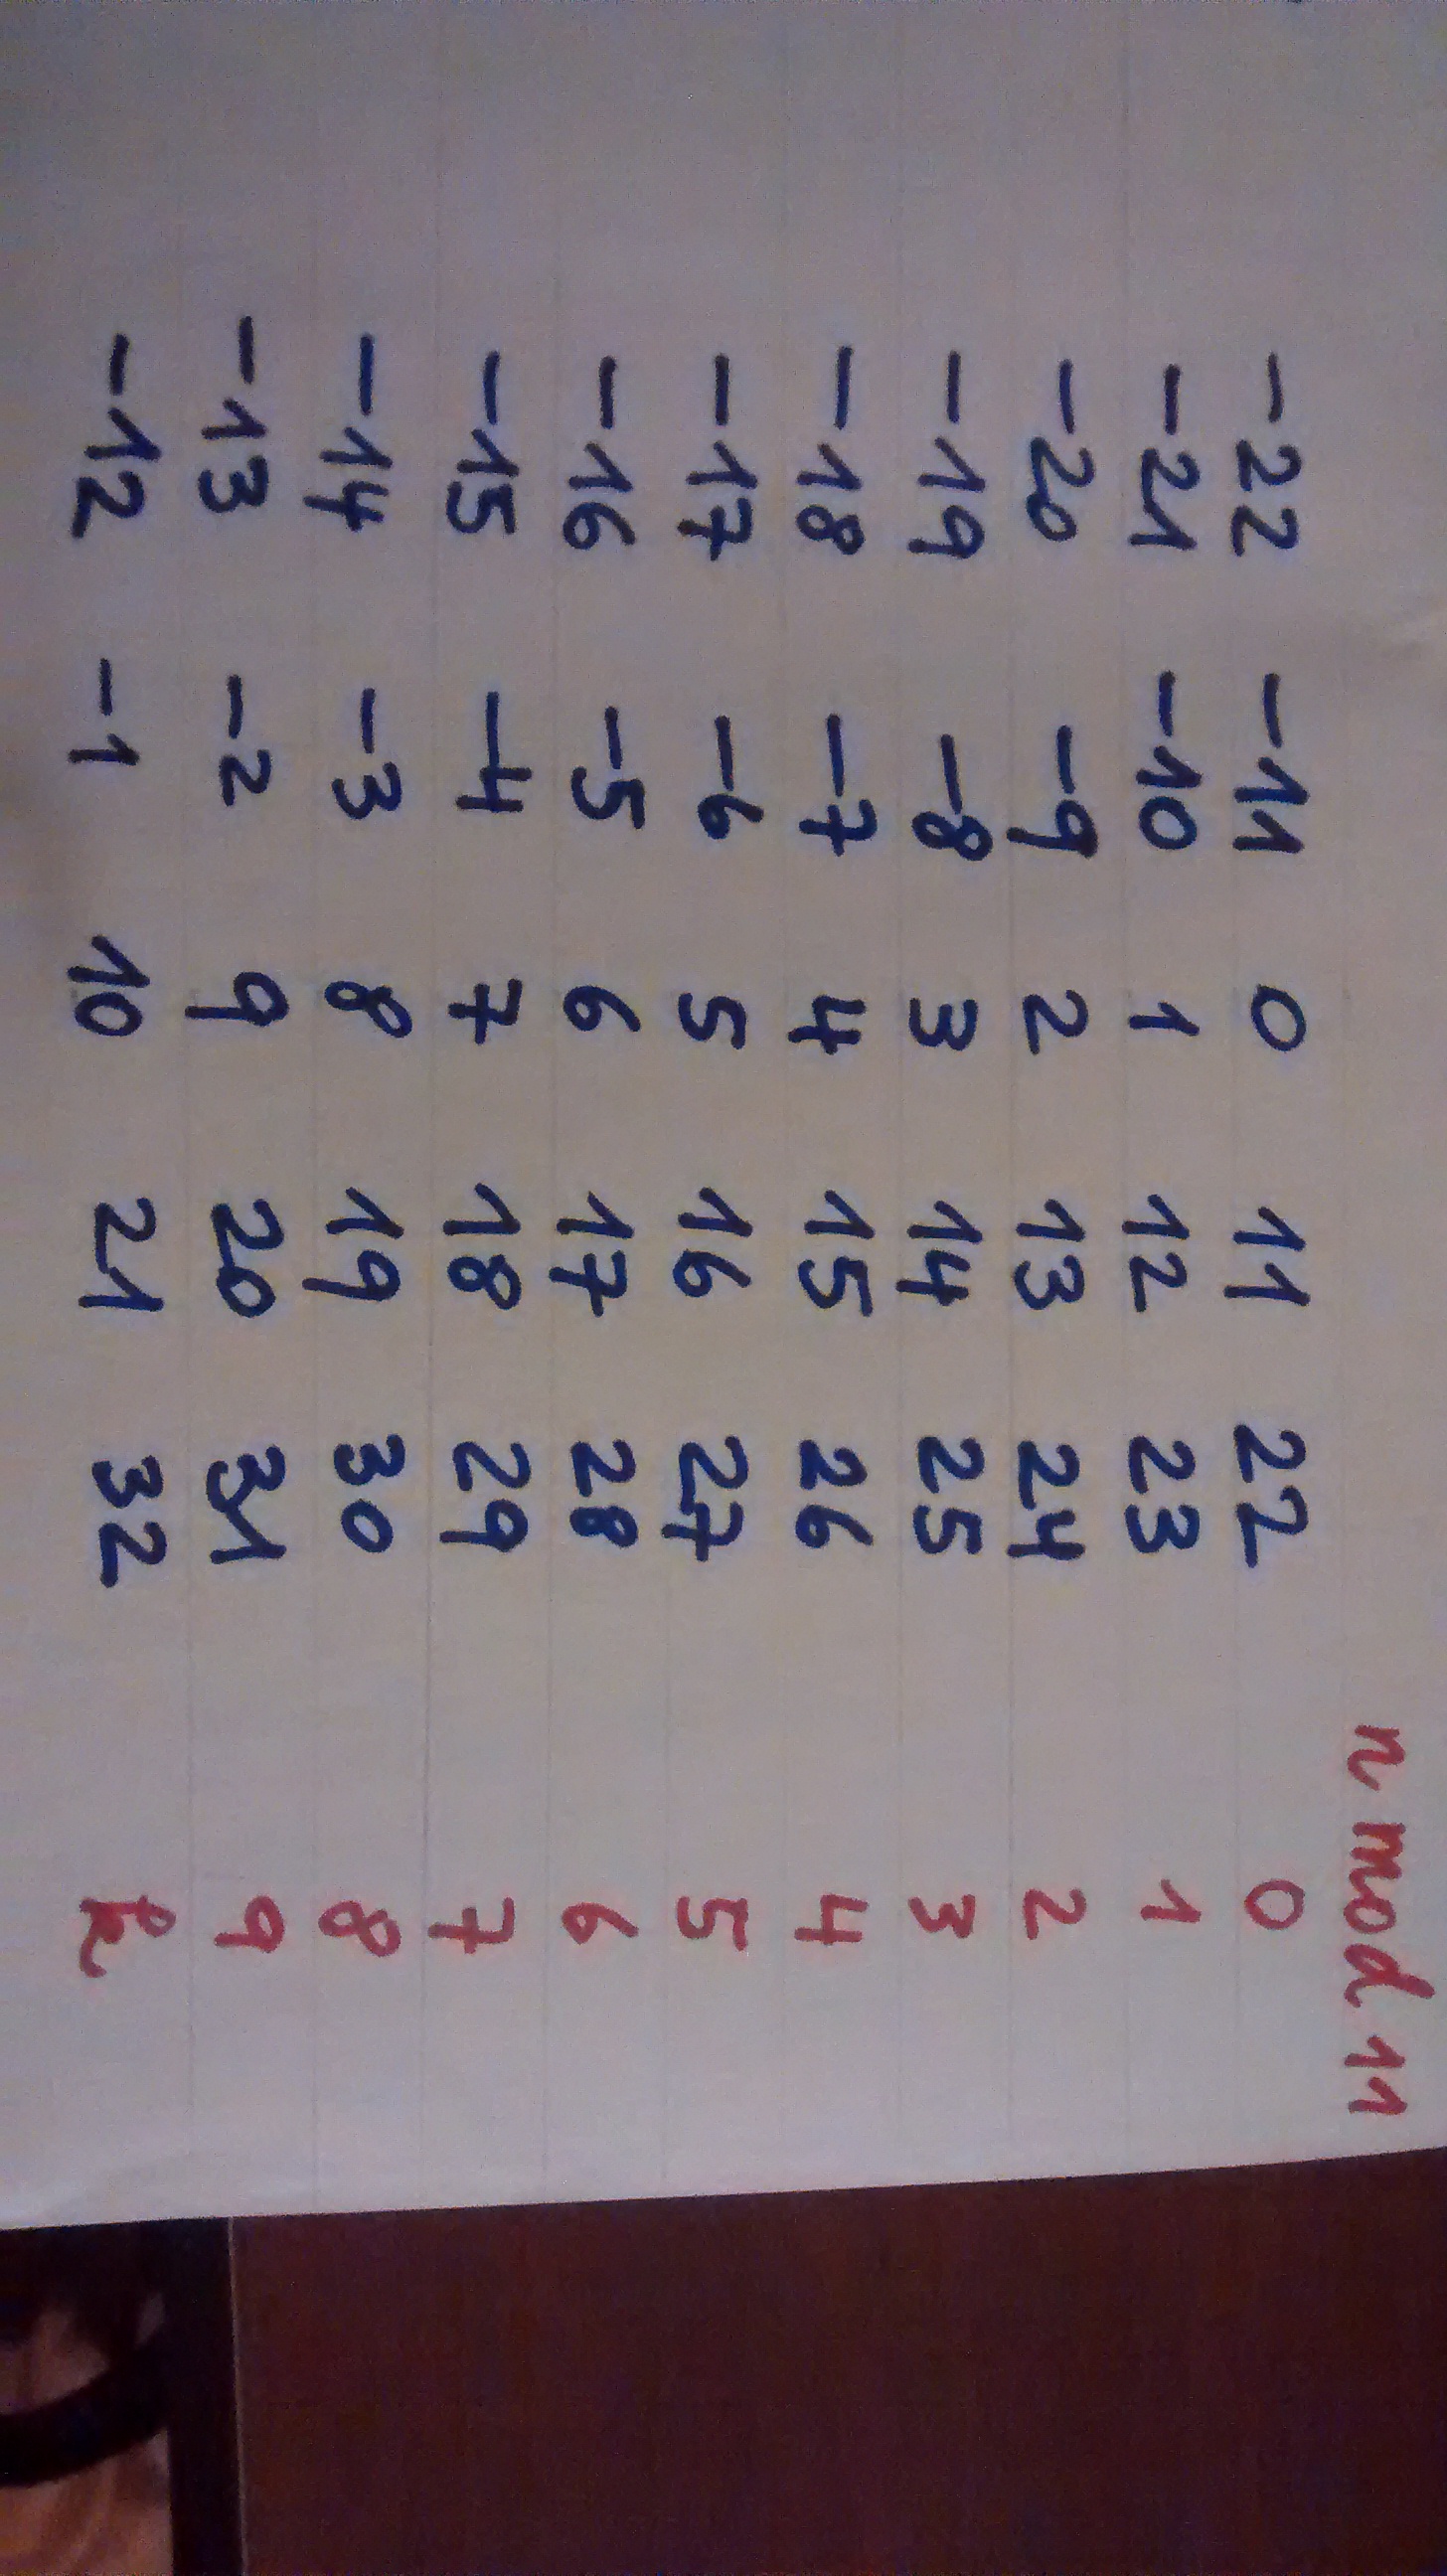 n mod 11
-22 -11 0 11 22 0
-21 -10 1 12 23 1
-20 -9 2 13 24 2
-19 -8 3 14 25 3
-18 -7 4 15 26 4
-17 -6 5 16 27 5
-16 -5 6 17 28 6
-15 -4 7 18 29 7
-14 -3 8 19 30 8
-13 -2 9 20 31 9
-12 -1 10 21 32 k